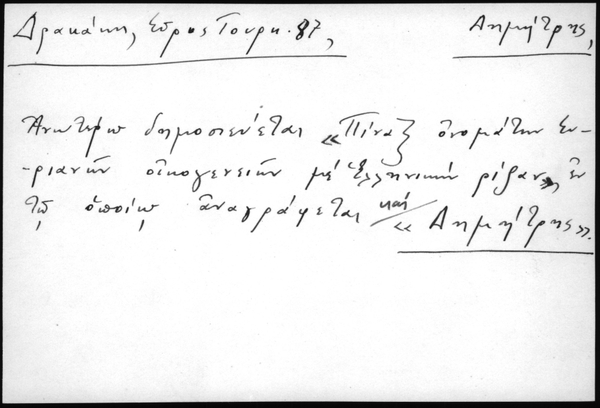 Δρακάκη, Σύρος Τουρκ. 87, Δημήτρης,
Ἀνωτέρω δημοσιεύεται «Πίναξ ὀνομάτων Συ-
-ριανῶν οἰκογενειῶν μέ Ἑλληνικήν ρίζαν», ἐν
τῷ ὁποίῳ ἀναγράφεται καί «Δημήτρης».